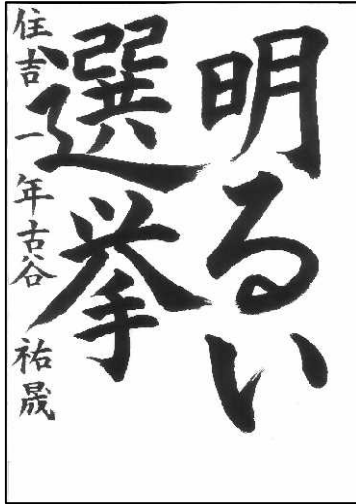 明るい
選挙
住吉 一年 古谷 祐晟